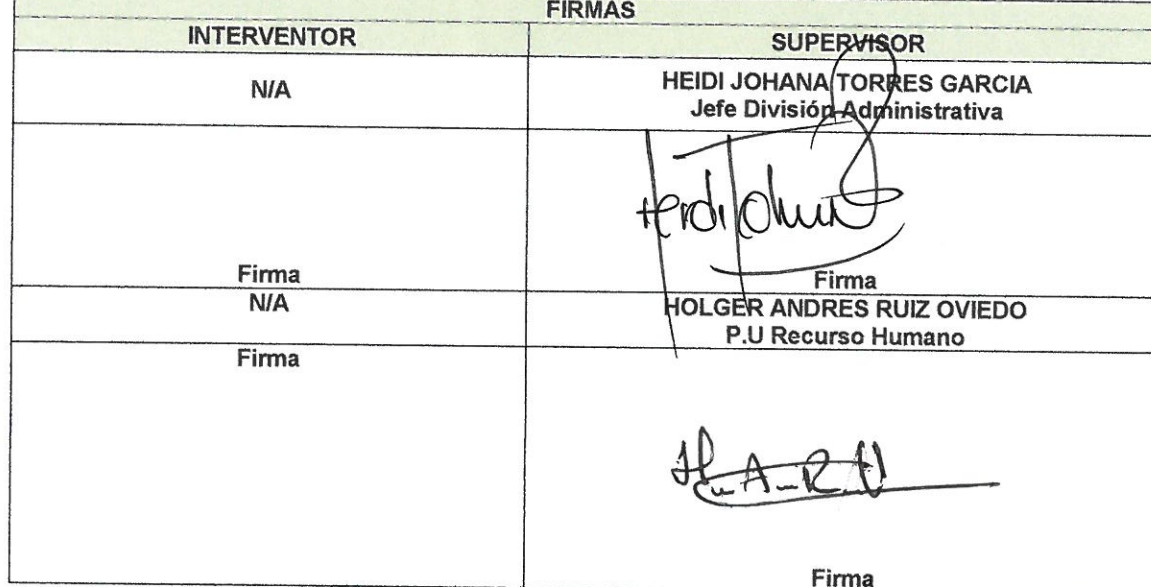 FIRMAS
INTERVENTOR
SUPERVISOR
N/A
HEIDI JOHANA TORRES GARCIA
Jefe División Administrativa
Heidi Johana
Firma
Firma
N/A
HOLGER ANDRES RUIZ OVIEDO
P.U Recurso Humano
Firma
Firma